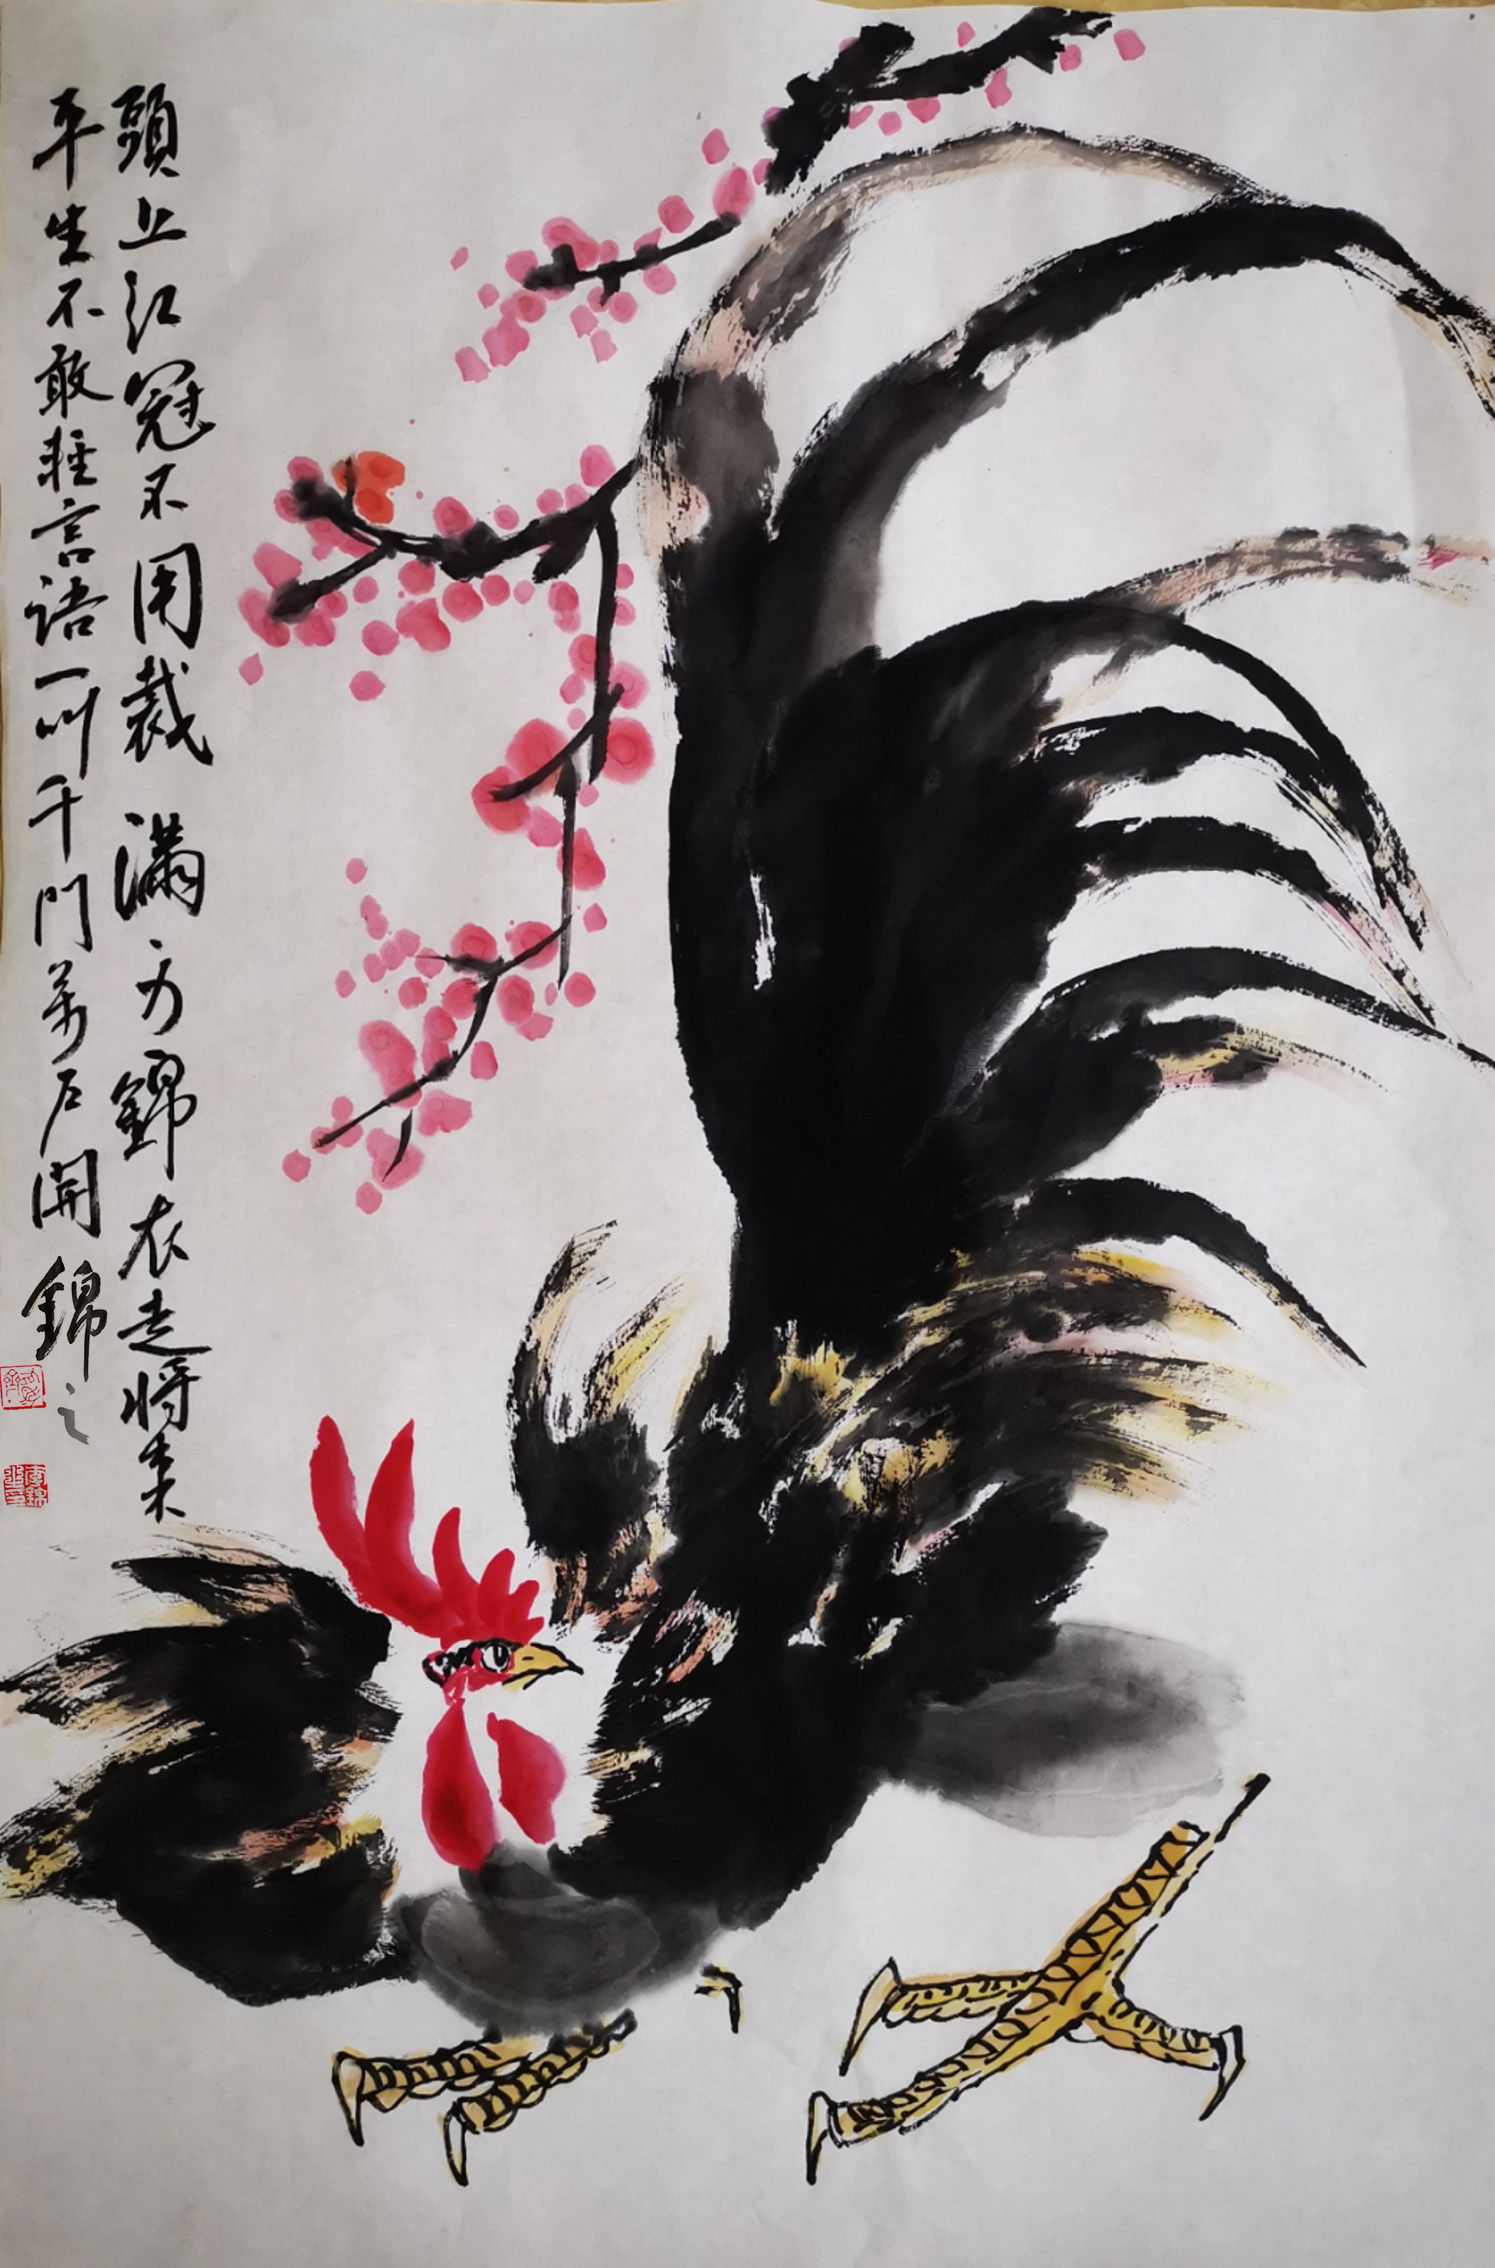 頭上红冠不用裁满身錦衣走将来
平生不敢輕言语一叫千門萬户開 錦之